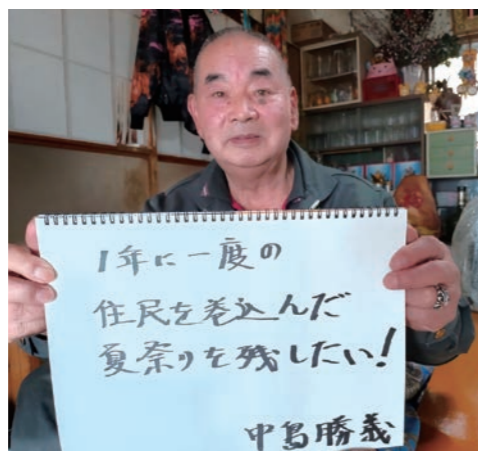 1年に一度の
住民を巻込んだ
夏祭りを残したい!
中島勝義